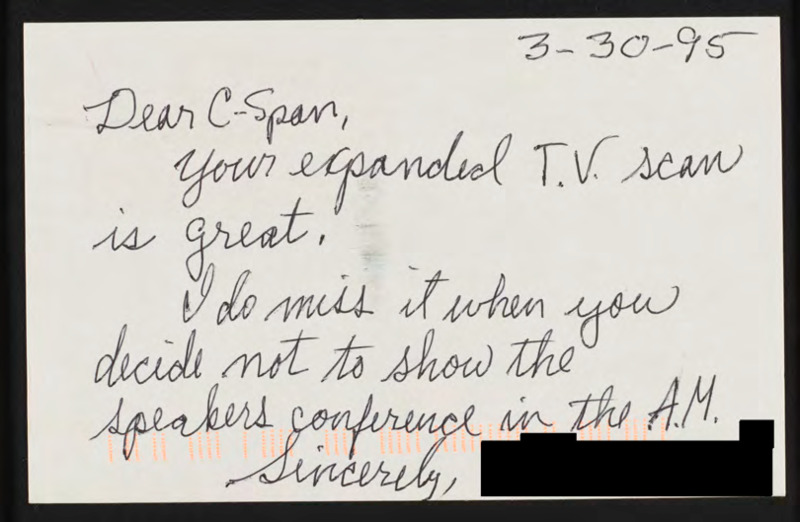 3-30-95
Dear C-Span,
Your expanded T.V. scan
is great.
I do miss it when you
decide not to show the
speakers conference in the A.M.
Sincerely,